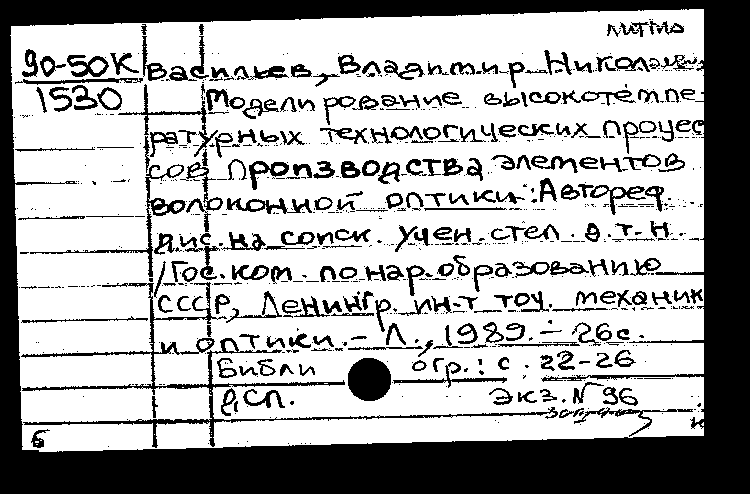 ЛИТМО
90-50К Васильев, Владимир Николаевич
1530 Моделирование высокотемпе-
ратурных технологических процес
сов производства элементов
волоконной оптики: Автореф.
дис. на соиск. учен. степ. д.т.н.
/Гос. ком. по нар. образованию
СССР, Ленингр. ин-т точ. механик
и оптики. - Л., 1989. - 26 с.
Библиогр.: с. 22-26
ДСП. Экз. N 96
б